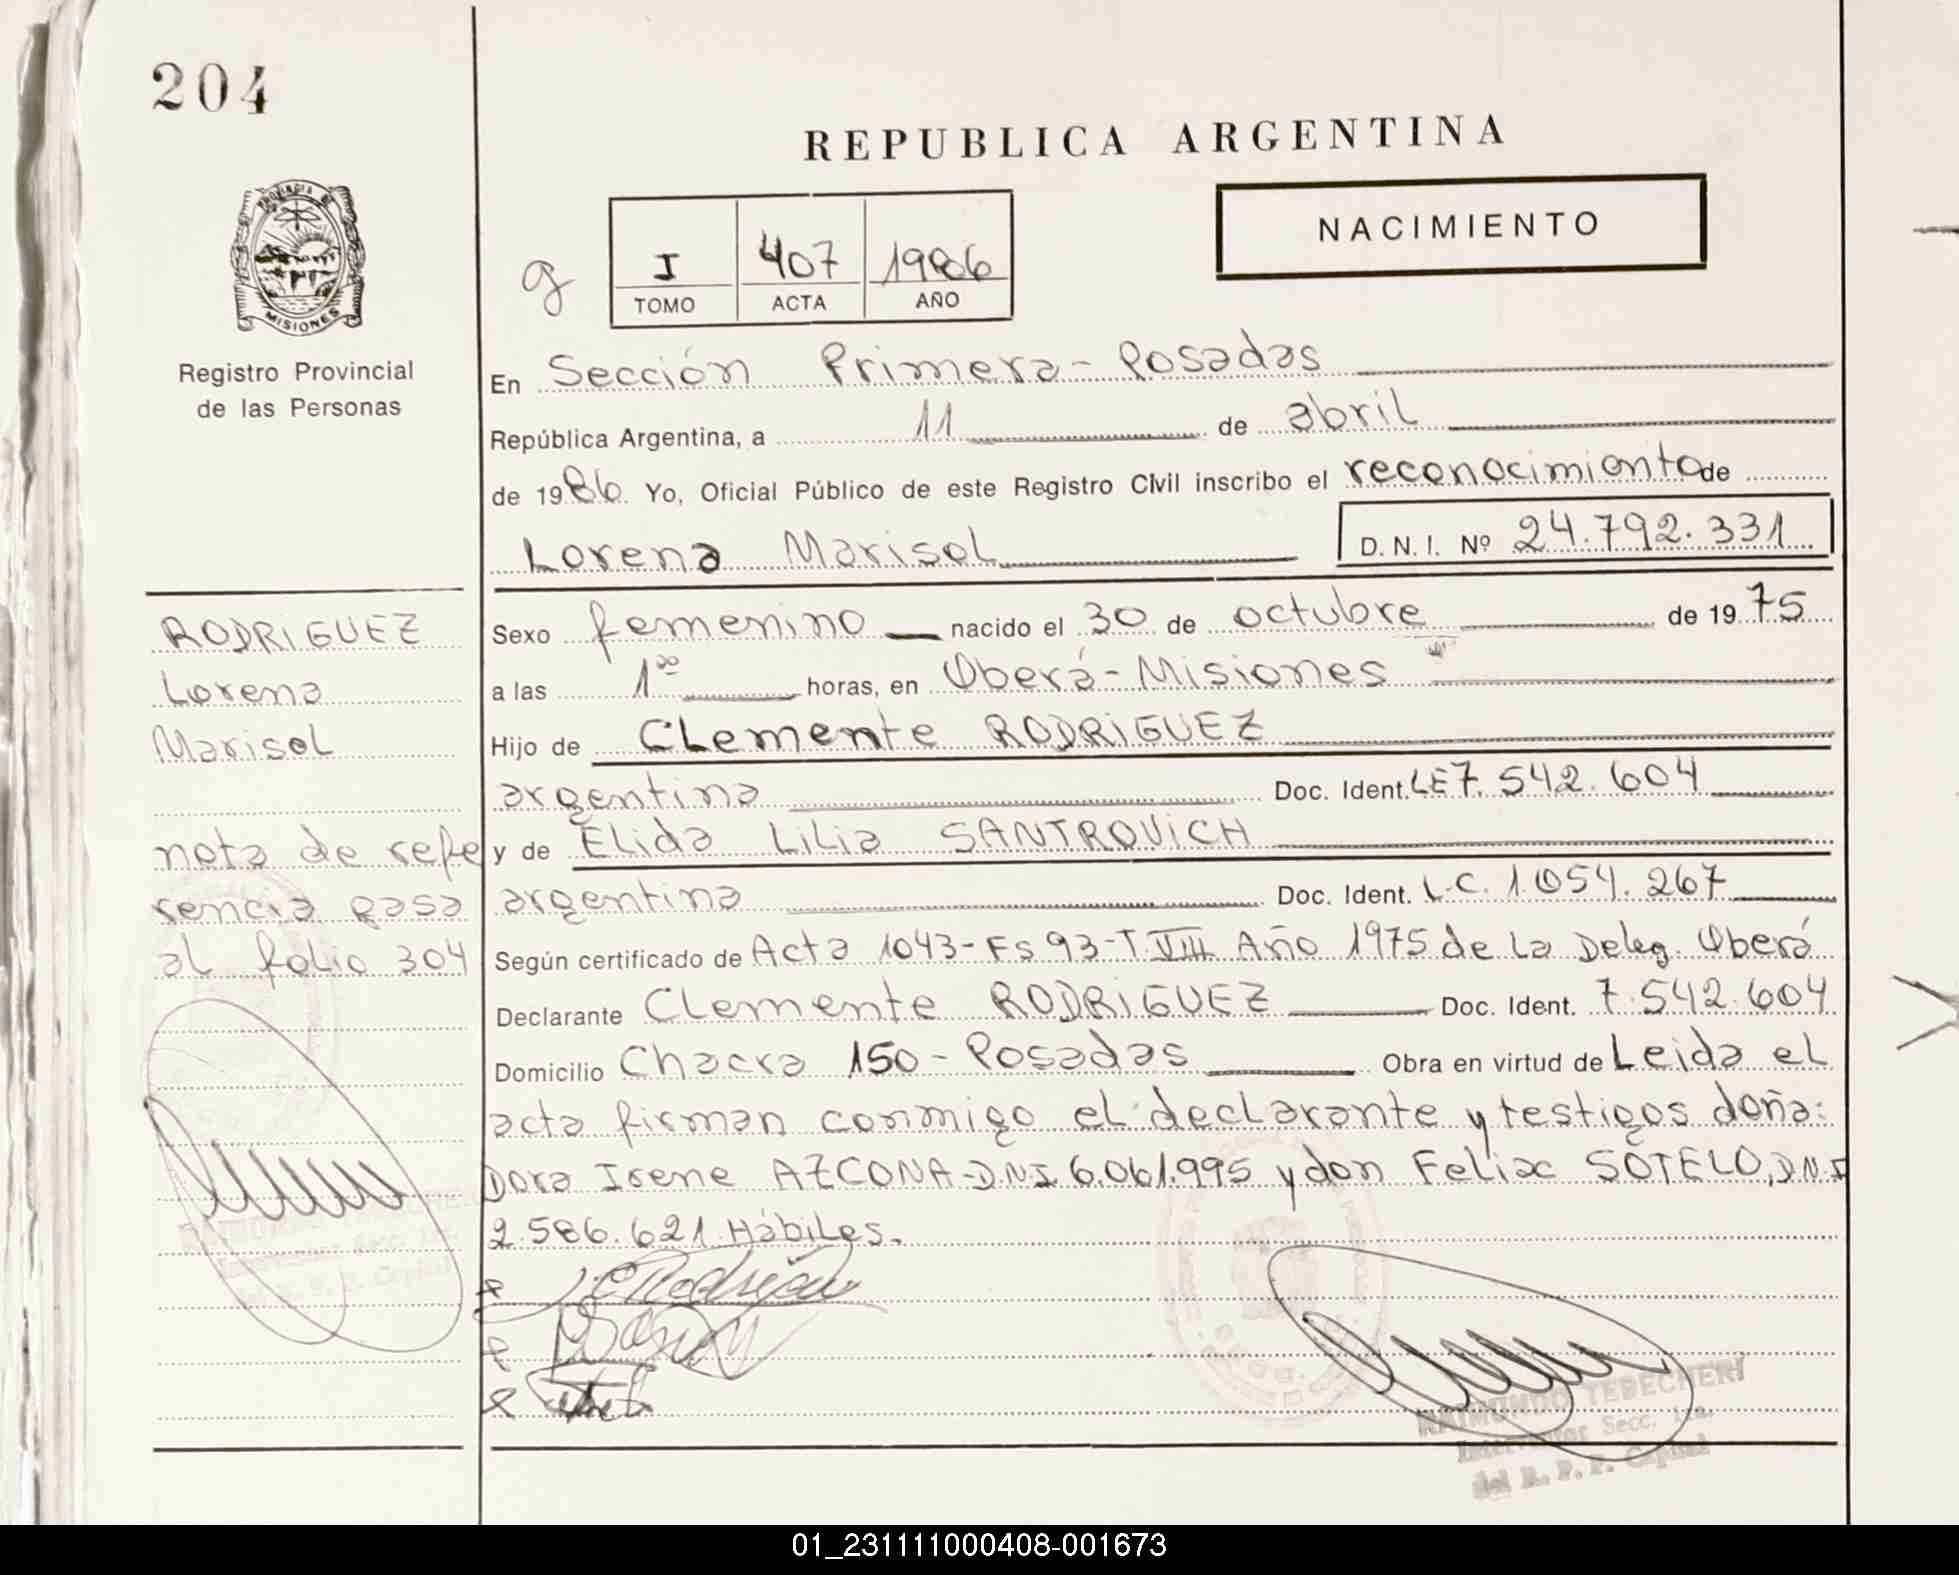 204
REPUBLICA ARGENTINA
NACIMIENTO
PROVINCIA DE
MISIONES
Registro Provincial
de las Personas
g
I 407 1986
TOMO ACTA AÑO
En Sección Primera - Posadas
República Argentina, a 11 de abril
de 1986 Yo, Oficial Público de este Registro Civil inscribo el reconocimiento de
Lorena Marisol D. N. I. Nº 24.792.331
RODRIGUEZ
Lorena
Marisol
nota de refe
rencia pasa
al folio 304
Sexo femenino nacido el 30 de octubre de 1975
a las 1ºº horas, en Oberá - Misiones
Hijo de Clemente RODRIGUEZ
argentina Doc. Ident. LE 7.542.604
y de Elida Lilia SANTROVICH
argentina Doc. Ident. L.C. 1.054.267
Según certificado de Acta 1043 - Fs 93 - T. VIII Año 1975 de la Deleg. Oberá
Declarante Clemente RODRIGUEZ Doc. Ident. 7.542.604
Domicilio Chacra 150 - Posadas Obra en virtud de Leida el
acta firman conmigo el declarante y testigos doña:
Dora Irene AZCONA - D.N.I. 6.061.995 y don Felix SOTELO, D.N.I
2.586.621 Hábiles.
RAIMUNDO TEBECHERI
Interventor Secc. 1ra.
del R. P. P. Capital
01_231111000408-001673